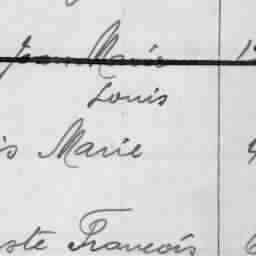 Jean Marie
Louis
is Marie
ste François